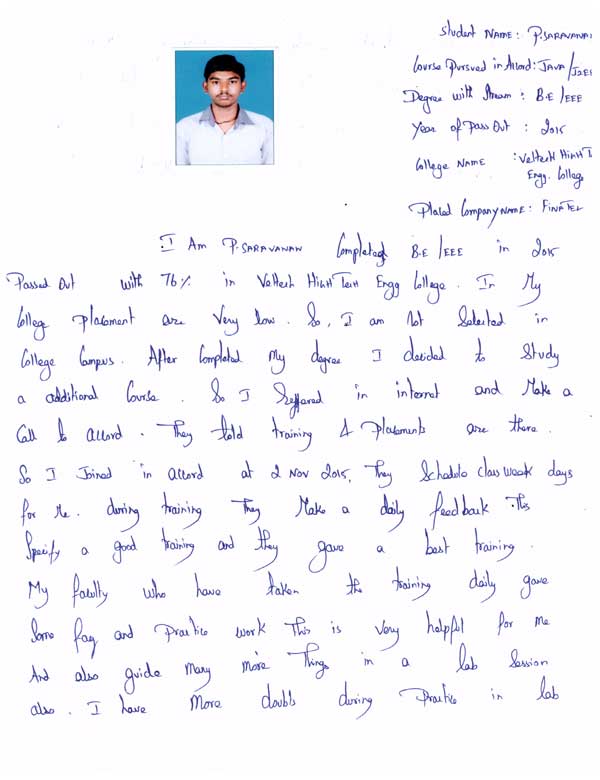 Student NAME : P.SARAVANAN
Course Pursued in Accord : JAVA/J2EE
Degree with Stream : B.E /EEE
Year of Pass Out : 2015
College NAME : Veltech HIGH T
Engg. College
Placed Company NAME : FINATEL
I Am P.SARAVANAN Completed B.E /EEE in 2015
Passed Out with 76% in Veltech HIGH Tech Engg College. In My
College placement are Very low. So, I am Not Selected in
College Campus. After Completed My degree I decided to Study
a additional Course. So I Reffered in internet and Make a
Call to accord. They told training & Placements are there.
So I Joined in accord at 2 Nov 2015, They Schedule class week days
for Me. during training They Make a daily feedback. This
Specify a good training and they gave a best training.
My faculty who have taken the training daily gave
Some faq and Practice work This is Very helpful for Me
And also guide Many More Things in a lab Session
also. I have More doubts during Practice in lab